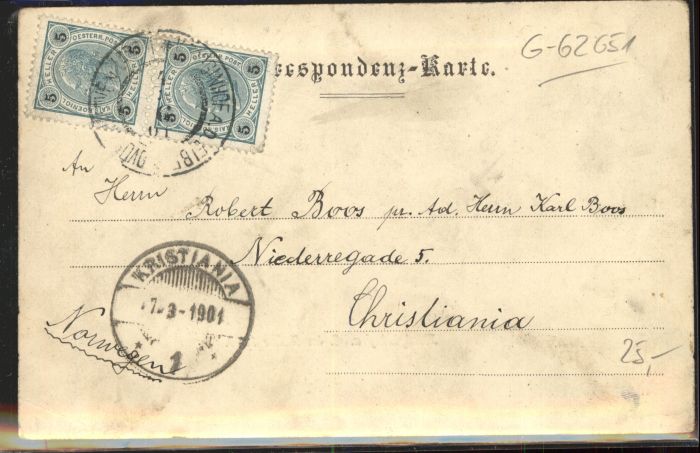 G-62651
respondenz-Karte.
5 HELLER 5
OESTERR. POST
5 HELLER 5
OESTERR. POST
An
Herrn Robert Boos pr. Ad. Herrn Karl Boos
Niederregade 5.
KRISTIANIA
7-3-1901
1
Christiania
Norwegen
25,-